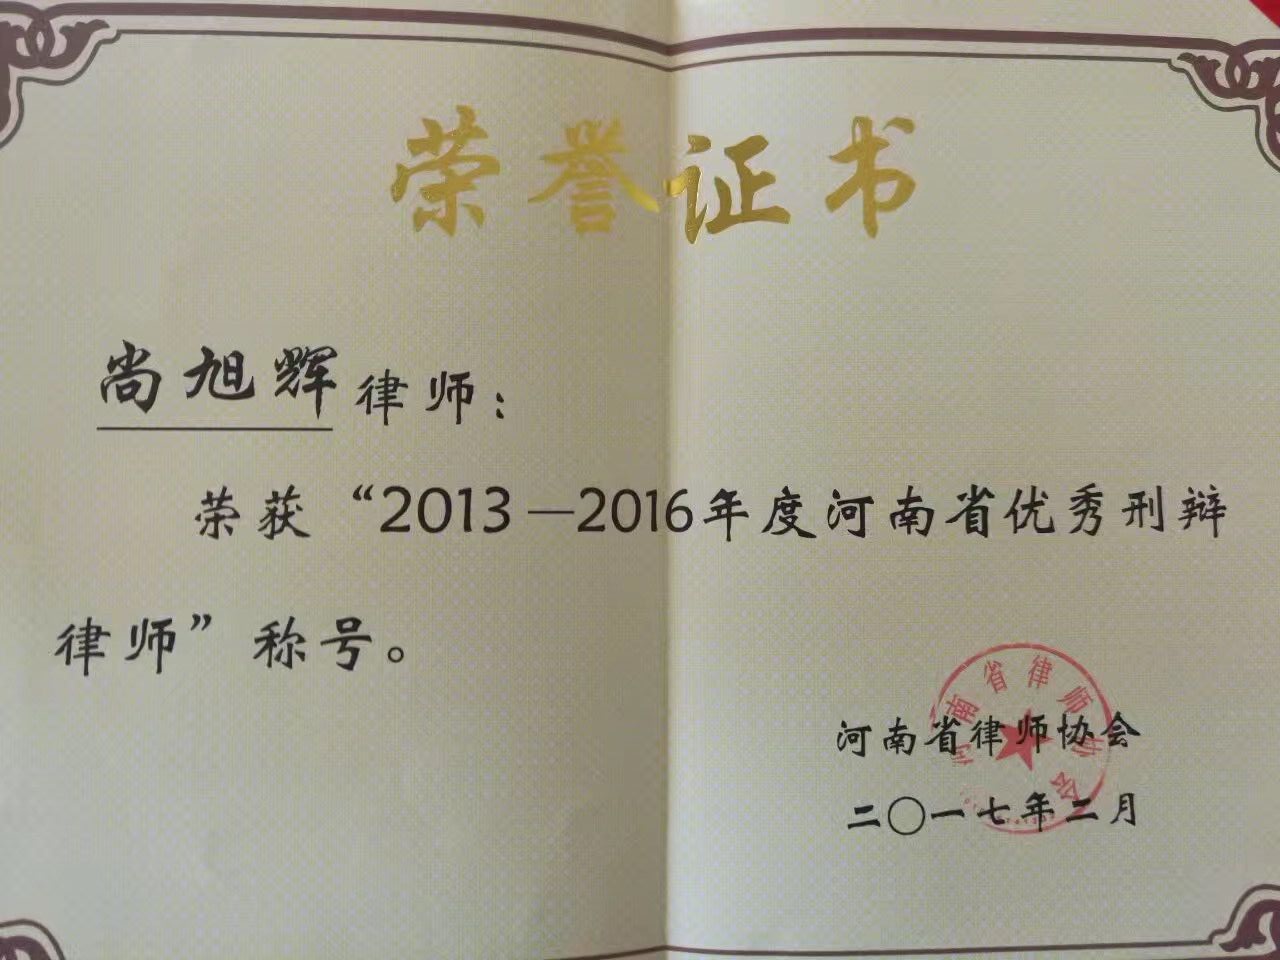 荣誉证书
尚旭辉律师：
荣获“2013—2016年度河南省优秀刑辩
律师”称号。
河南省律师协会
二〇一七年二月
河南省律师协会